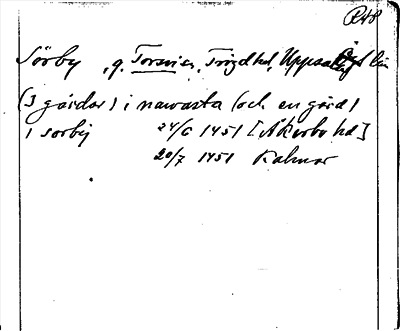 RAP
Sörby, g. Torsvi sn, Trögd hd, Uppsala län
(3 gårdar) i nawarta (och en gård)
i sorby 24/6 1451 [Åkerbo hd]
20/7 1451 Kalmar